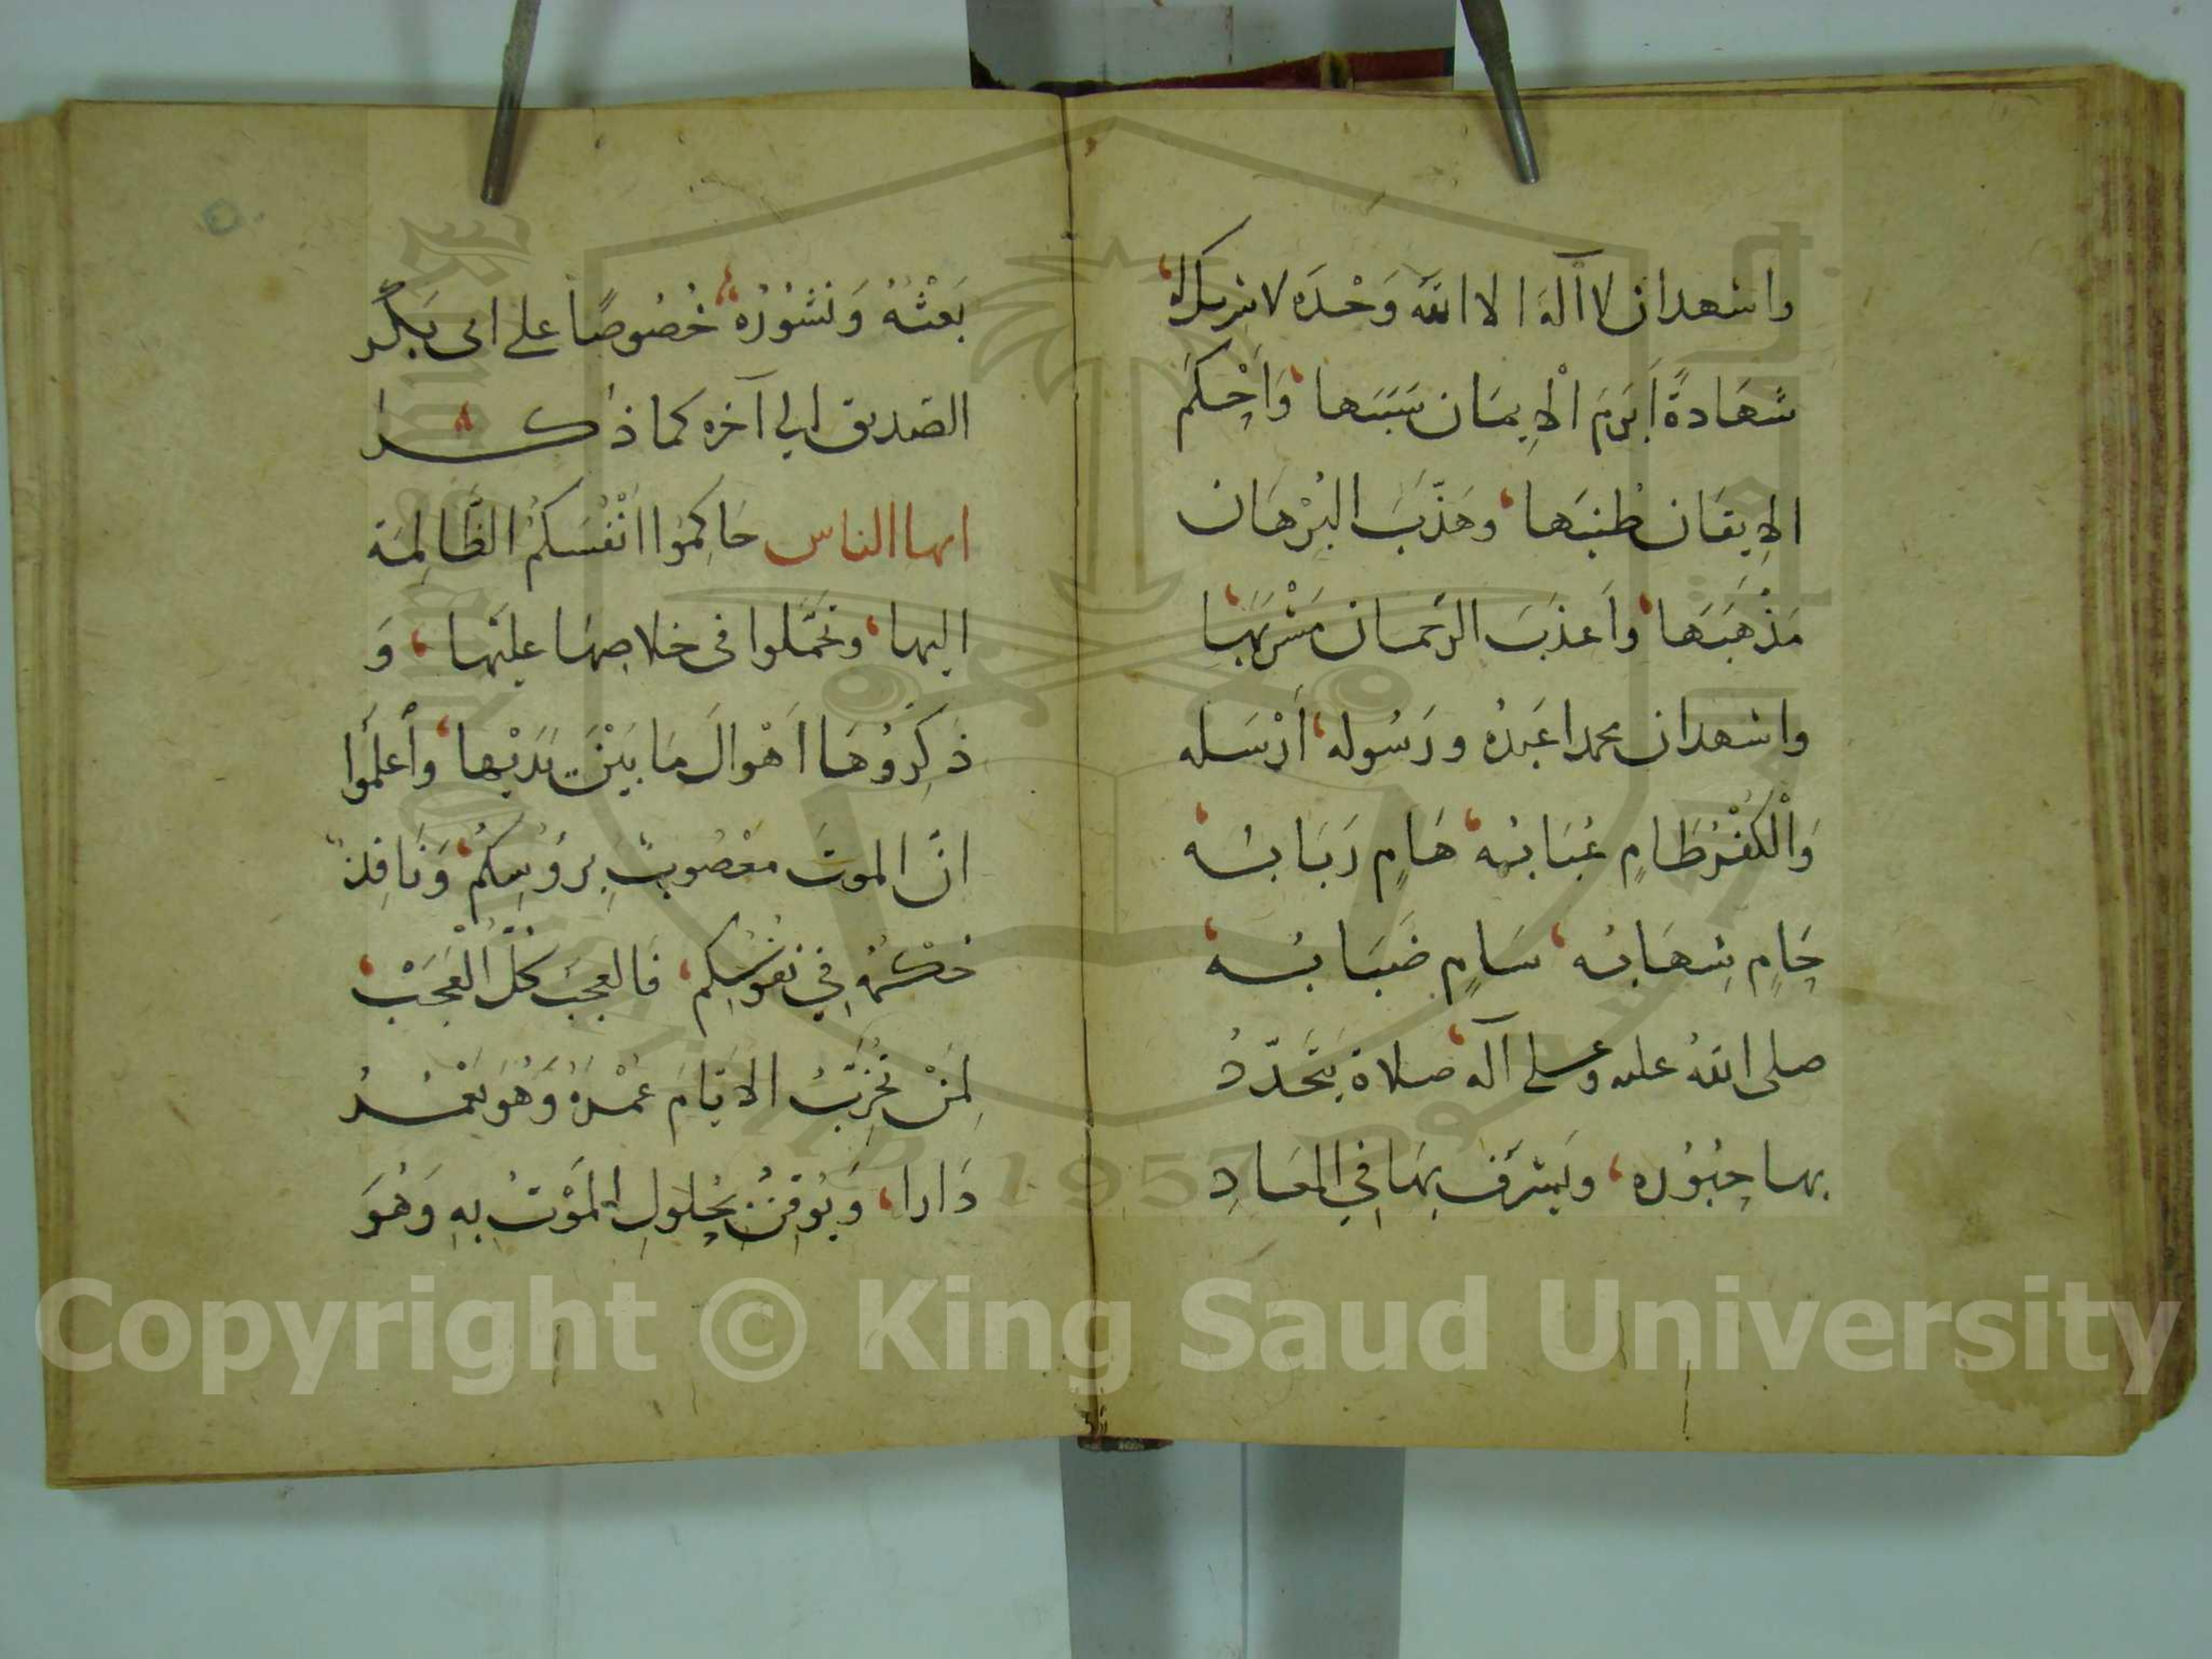 واشهدان لا آله الا الله وَحْدَه لا شريك له،
شهَادةً اَبرَمَ الْاِيمَان سَبَبَها، وَاَحْكَمَ
الاِيقَان طُنبَها، وهَذّبَ البُرْهَان
مَذْهَبَهَا، واَعذَبَ الرّحمَان مَشْرَبَهَا،
واشهدان محمدا عَبدُه ورَسُوله، اَرْسَله
وَالْكُفْرُ طَامٍ عُبَابُه، هَامٍ رَبَابُه،
حَامٍ شِهَابُه، سَامٍ ضَبَابُه،
صلى اللهُ عليه وعلى آله، صلاة يَتَجَدّدُ
بها حُبُوُره، ويَشرَف بِهَا فِي المعَادِ
بَعْثُهُ وَنشُوُرُه، خُصُوصًا على ابى بَكرٍ
الصديق الى آخره كما ذكر
ايها الناس حَاكِمُوا انْفُسَكُمُ الظَّالِمَة
اليها، وتحَمَّلوا فى خلاصِهَا عليَها، وَ
ذَكِّرُوُهَا اَهْوالَ مَا بَيْنَ يَدَيْها، وأعلَموا
انّ الموتَ معْصُوبٌ بِرؤُسِكُمْ، وَنَافِذٌ
حُكْمُهُ فِي نفوُسِكُم، فَالعجَبَ كُلَّ الْعَجَبْ،
لِمَنْ تُخرِّبُ الاَيّامَ عُمْرَهُ وَهُوَ يَعْمُرُ
دَارا، وَيُوقِنُ بِحُلولِ الْمَوْتُ بِهِ وَهُوَ
Copyright © King Saud University
1957